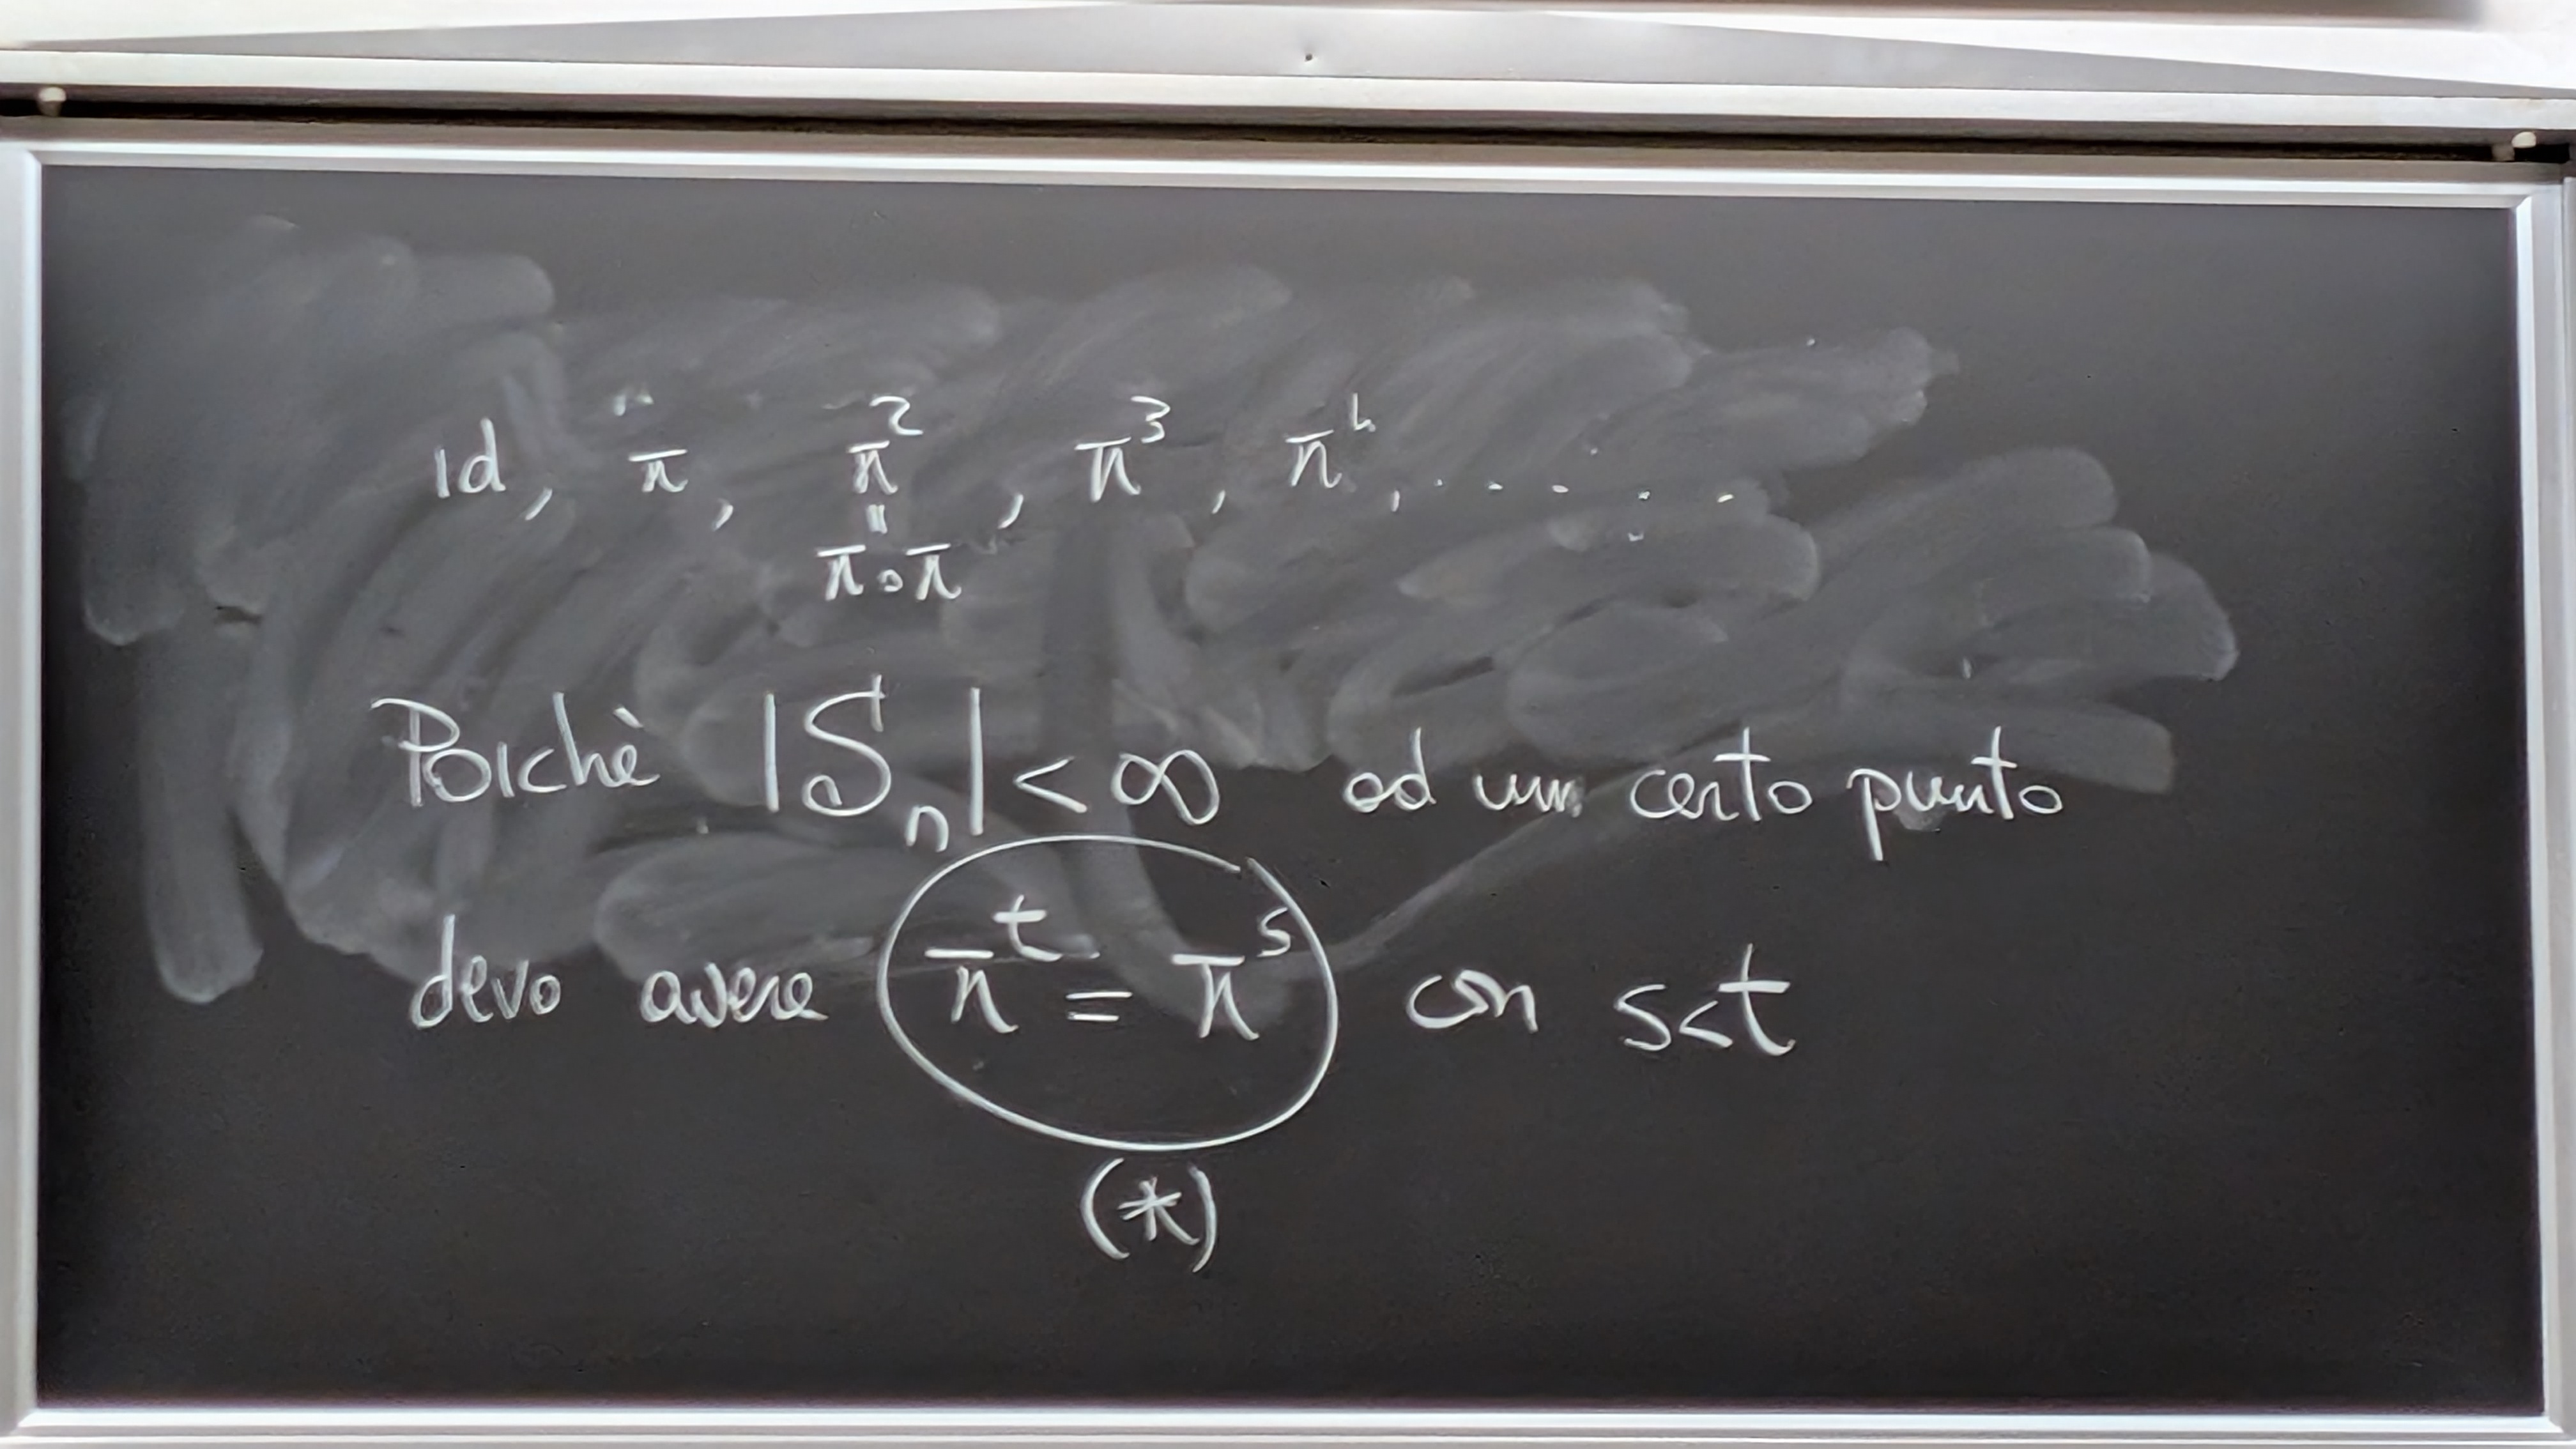 id, π, π², π³, π⁴, . . . . .
=
π∘π
Poichè |Sₙ| < ∞ ad un certo punto
devo avere πᵗ = πˢ con s<t
(*)